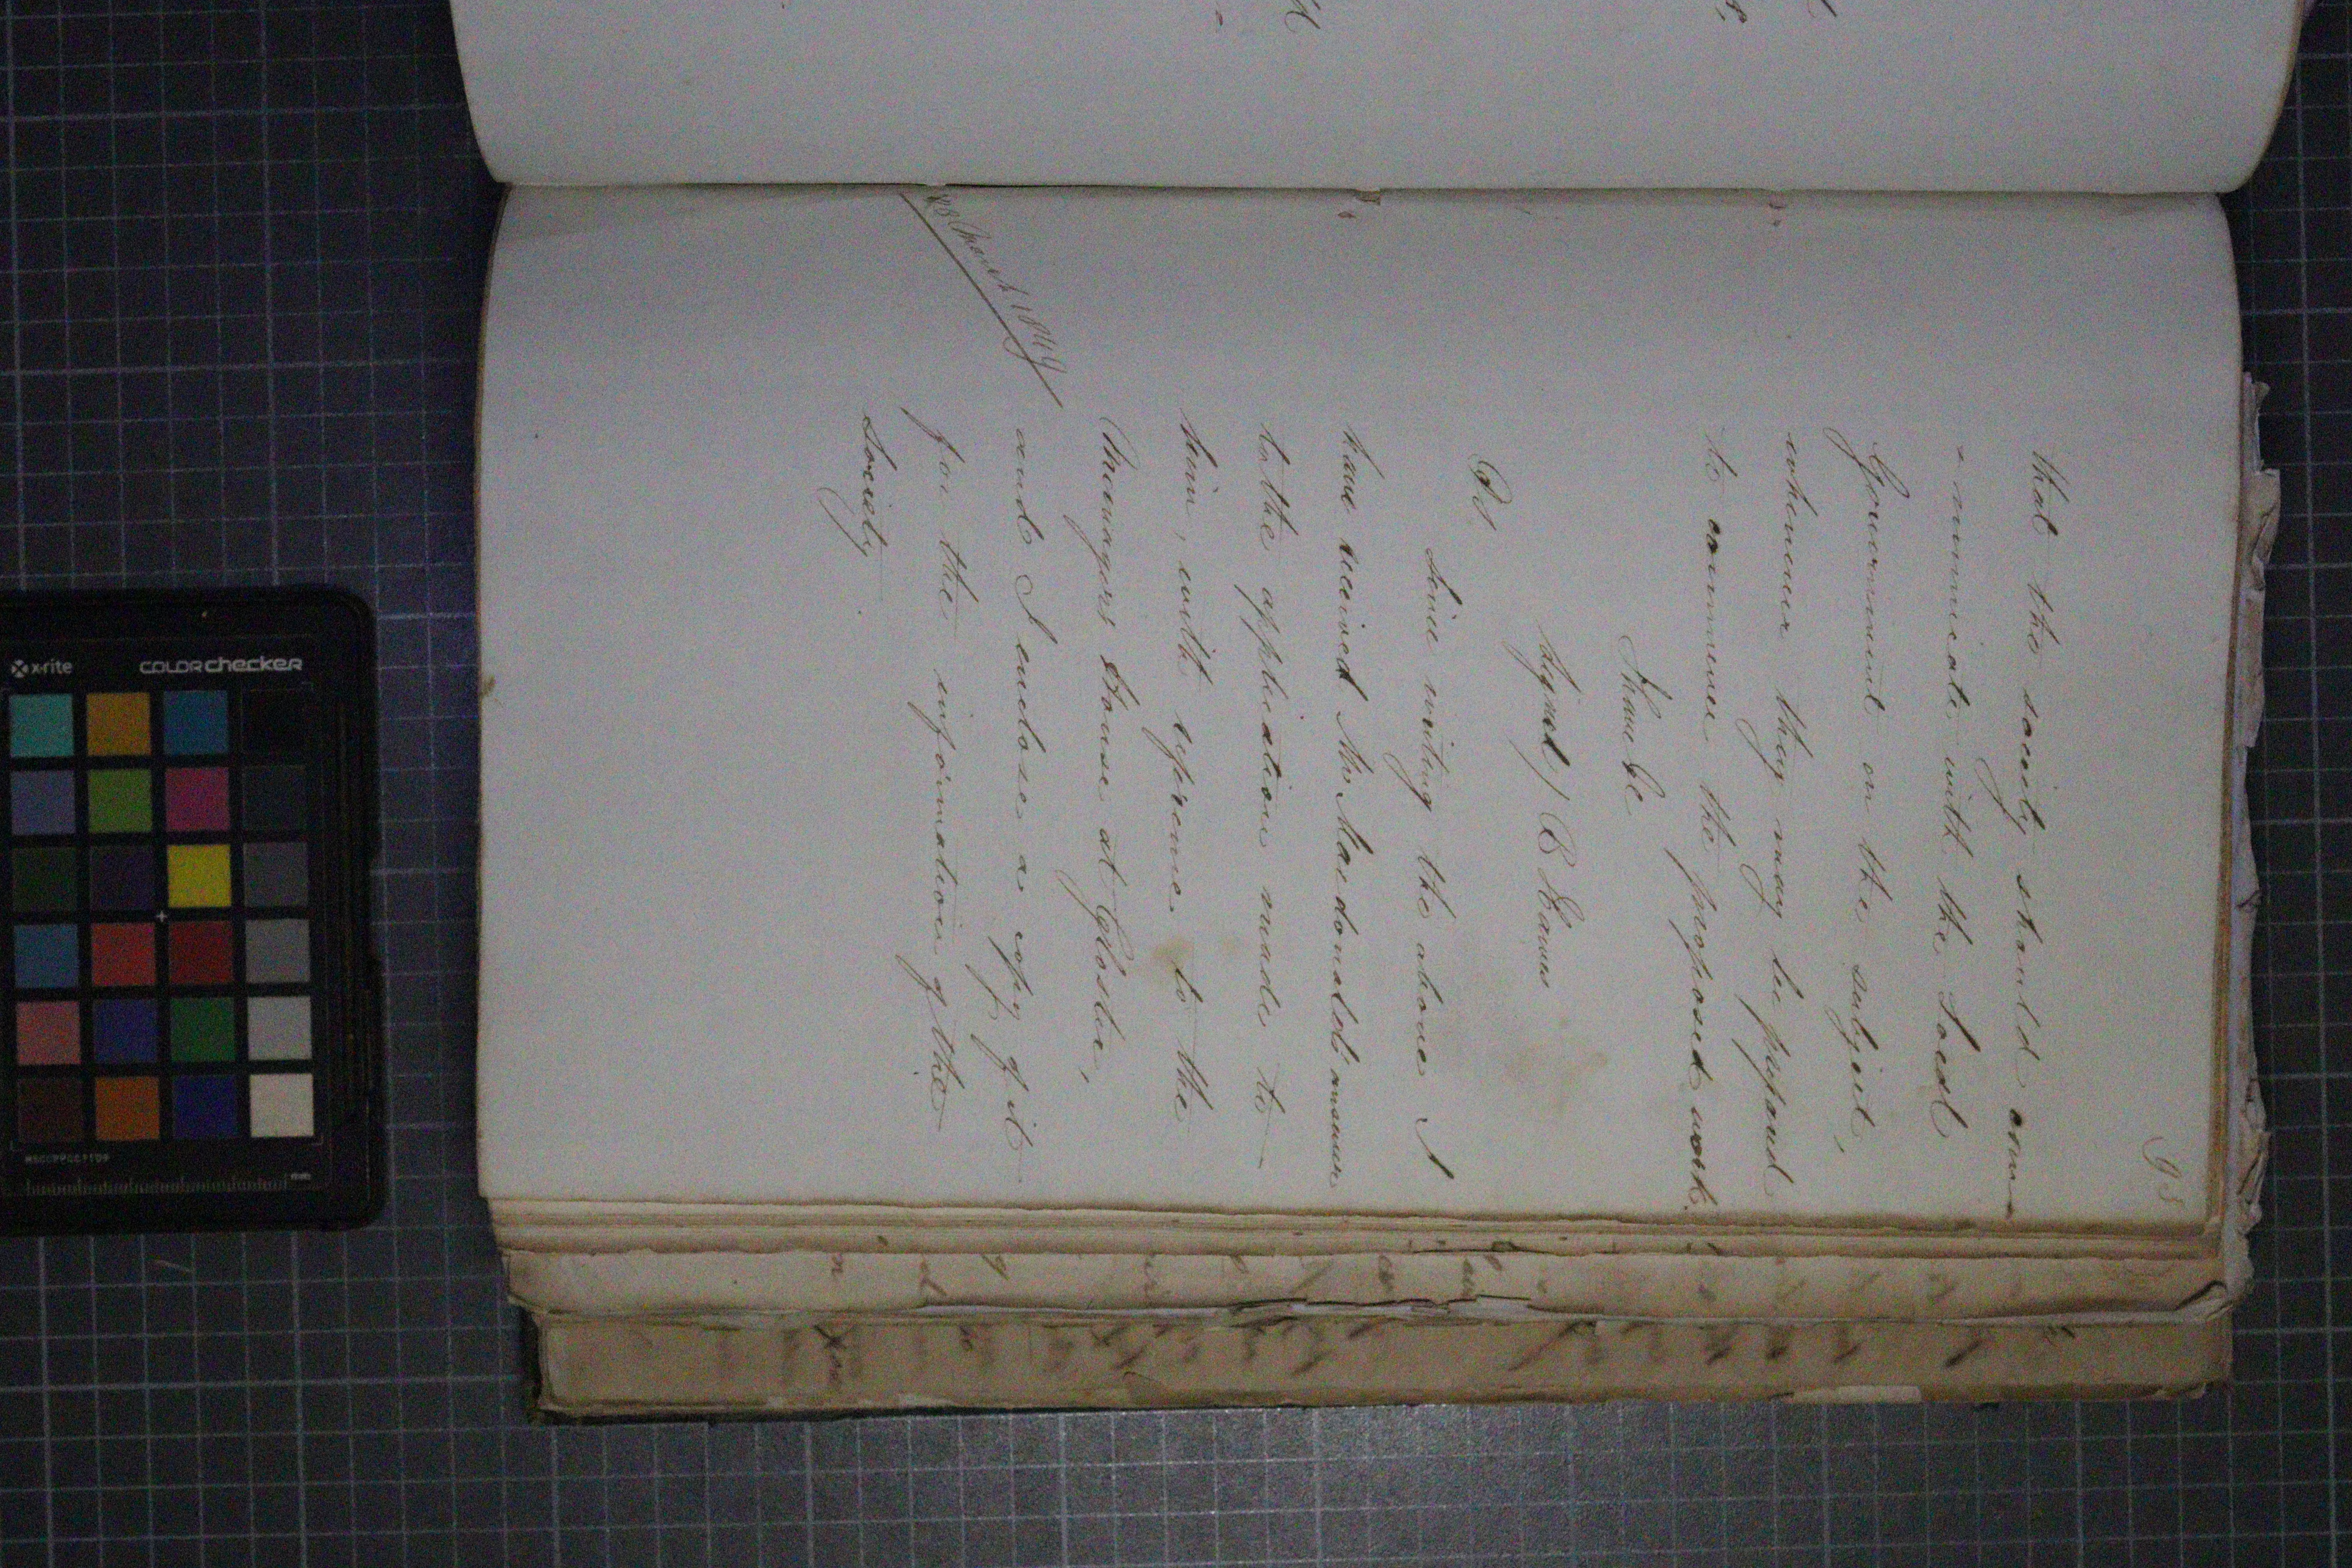 98
that the society should com
- municate with the Local
Government on the subject,
whenever they may be prepared
to commence the proposed work
I have &c
Signed) B Hawes
PS,
Since writing the above I
have received Mr. Macdonald's answer
to the application made to
him, with reference to the
Managers House at Gloster,
and I enclose a copy of it
for the information of the
Society
March 1844
x-rite
COLOR checker